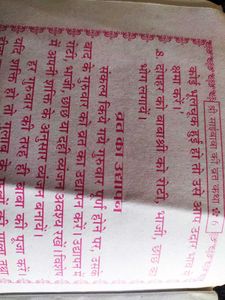 श्री साईंबाबा की व्रत कथा 6
कोई भूलचूक हुई हो तो उसे अपार उदार भाव से
क्षमा करें।
8. दोपहर को बाबाश्री को रोटी, भाजी, छाछ का
भोग लगायें।
व्रत का उद्यापन
संकल्प किये गये गुरुवार पूर्ण होने पर उसके
बाद के गुरुवार को व्रत का उद्यापन करें। उद्यापन में
रोटी, भाजी, छाछ या दही व्यंजन अवश्य रखें। बाकी
में अपनी शक्ति के अनुसार व्यंजन बनायें।
हर गुरुवार की तरह ही बाबा की पूजा करें।
यदि शक्ति हो तो